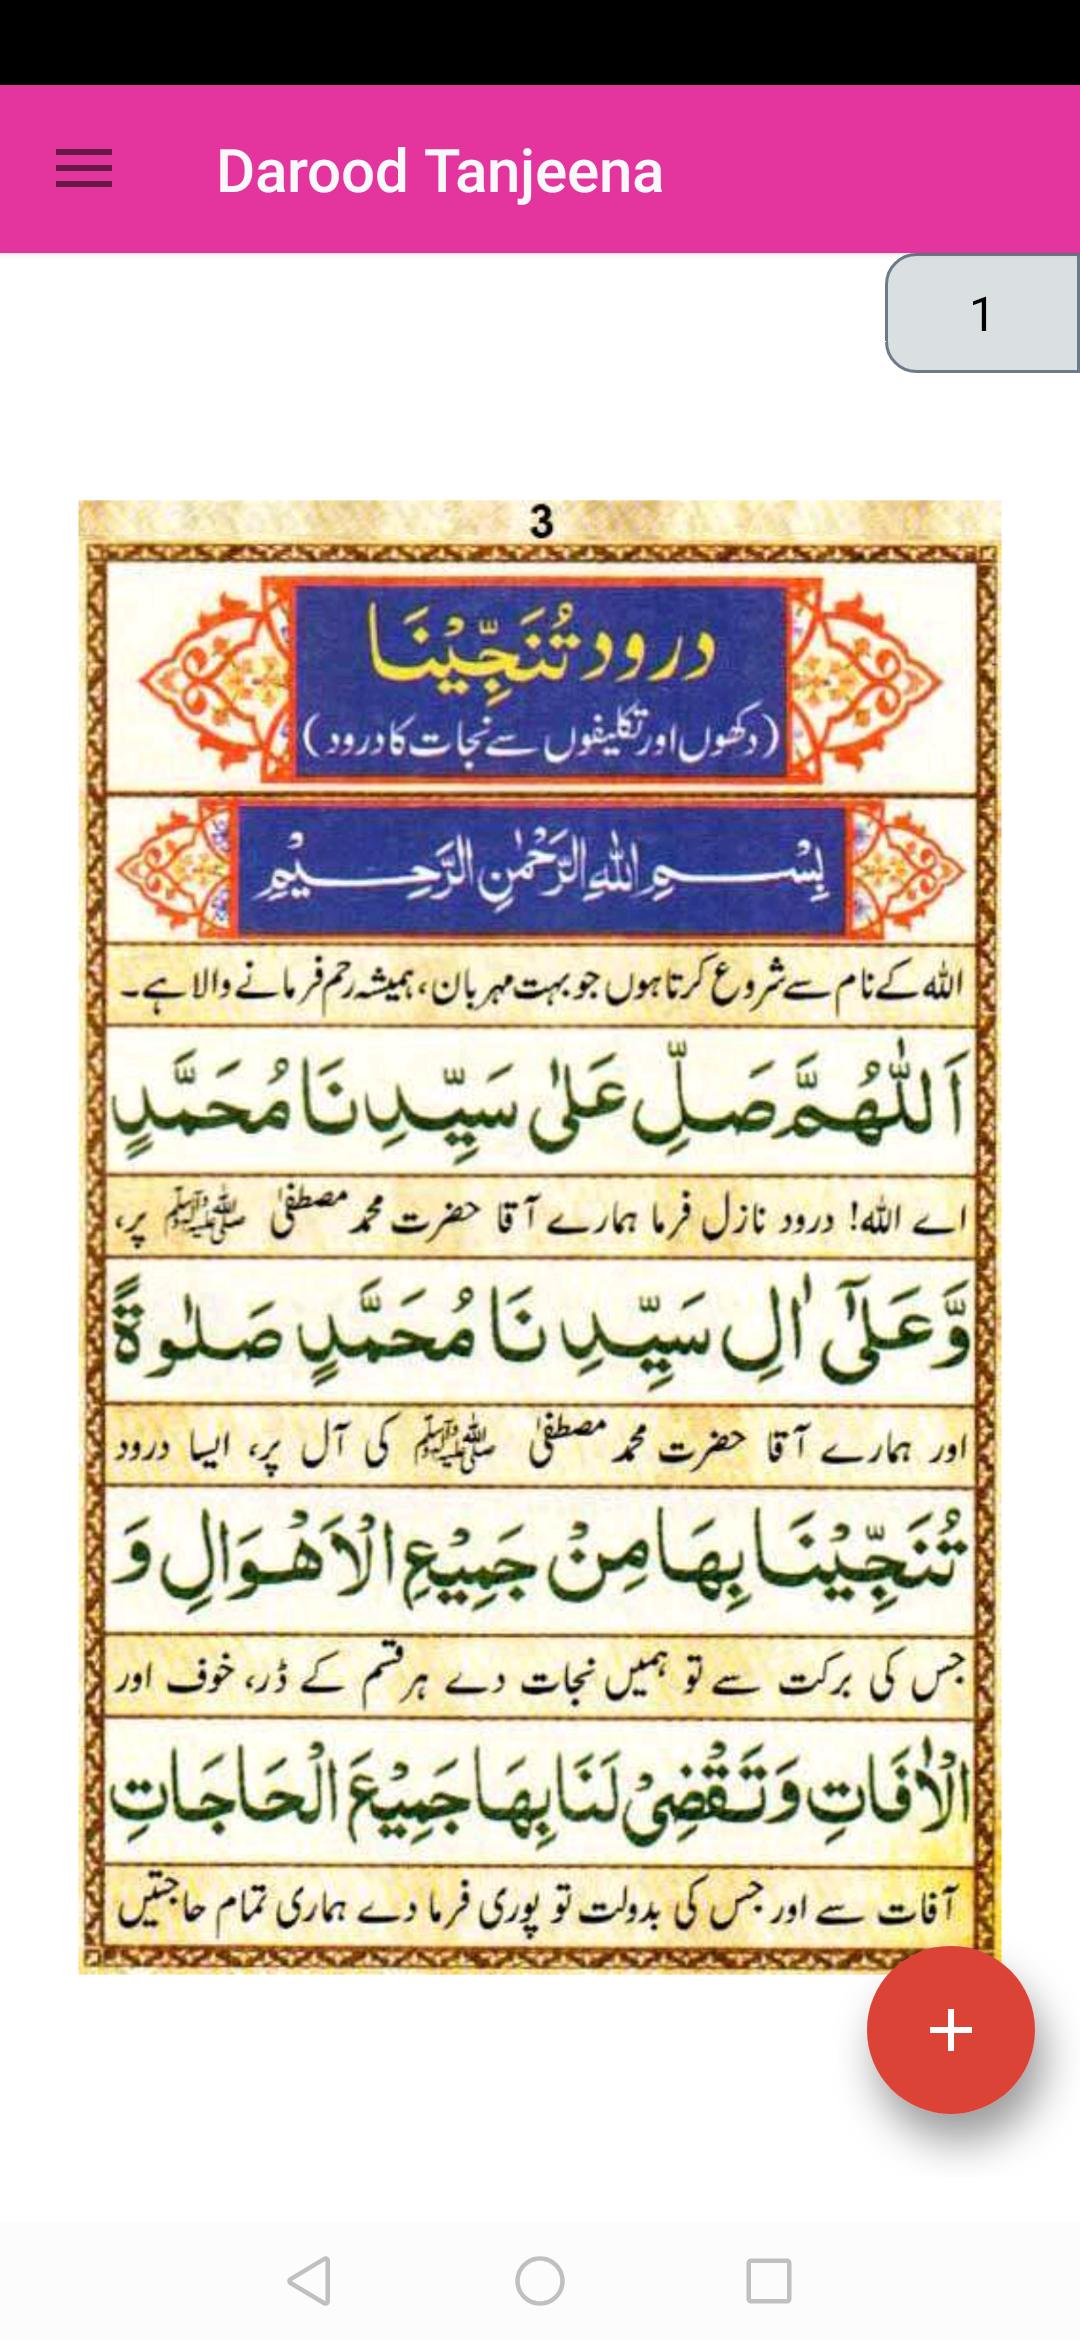 Darood Tanjeena
1
3
درود تُنَجِّیْنَا
(دکھوں اور تکلیفوں سے نجات کا درود)
بِسْمِ اللهِ الرَّحْمٰنِ الرَّحِیْمِ
اللہ کے نام سے شروع کرتا ہوں جو بہت مہربان، ہمیشہ رحم فرمانے والا ہے۔
اَللّٰهُمَّ صَلِّ عَلٰی سَیِّدِنَا مُحَمَّدٍ
اے اللہ! درود نازل فرما ہمارے آقا حضرت محمد مصطفیٰ ﷺ پر،
وَّعَلٰۤی اٰلِ سَیِّدِنَا مُحَمَّدٍ صَلٰوةً
اور ہمارے آقا حضرت محمد مصطفیٰ ﷺ کی آل پر، ایسا درود
تُنَجِّیْنَا بِهَا مِنْ جَمِیْعِ الْاَهْوَالِ وَ
جس کی برکت سے تو ہمیں نجات دے ہر قسم کے ڈر، خوف اور
الْاٰفَاتِ وَتَقْضِیْ لَنَا بِهَا جَمِیْعَ الْحَاجَاتِ
آفات سے اور جس کی بدولت تو پوری فرما دے ہماری تمام حاجتیں